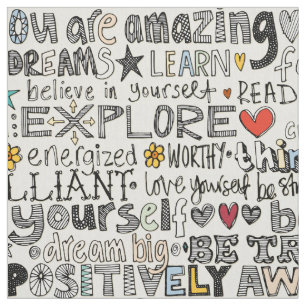 you are amazing
DREAMS LEARN fo
believe in yourself READ
EXPLORE
energized WORTHY thin
LLIANT love yourself be st
yourself b
dream big BE TR
POSITIVELY AW